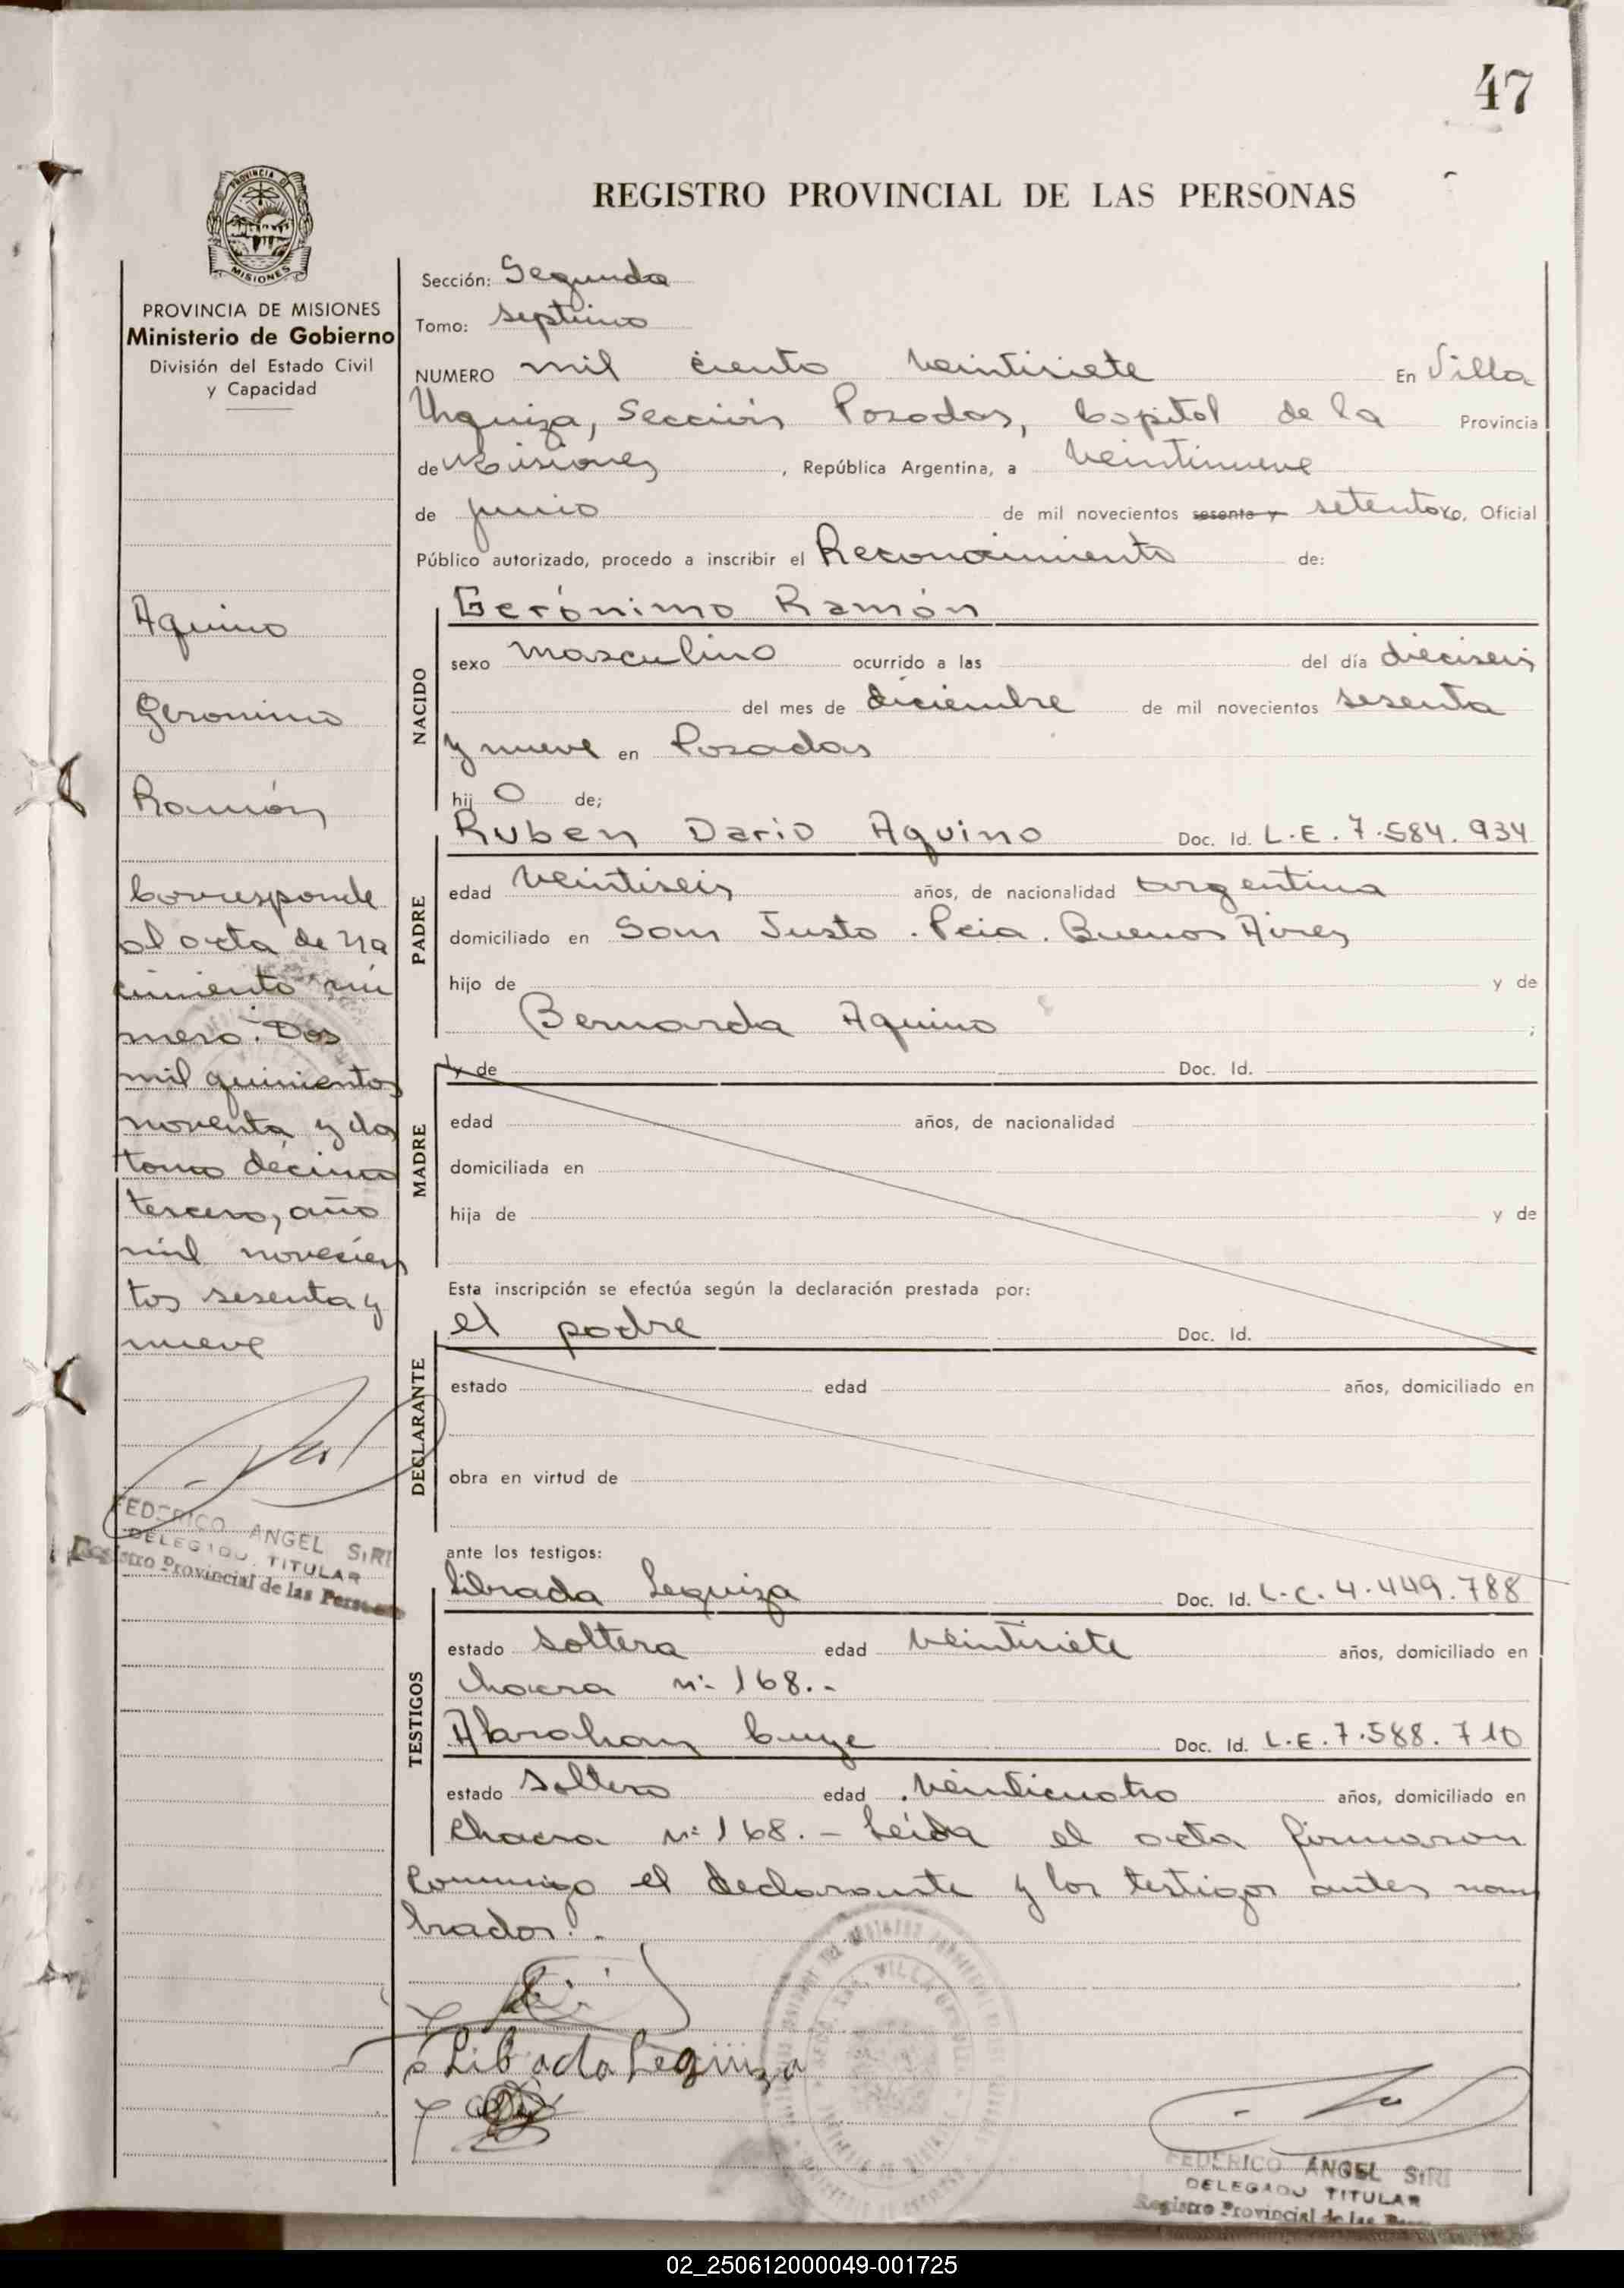 47
PROVINCIA DE
MISIONES
REGISTRO PROVINCIAL DE LAS PERSONAS
PROVINCIA DE MISIONES
Ministerio de Gobierno
División del Estado Civil
y Capacidad
Aquino
Geronimo
Ramón
Corresponde
al acta de na
cimiento nú
mero: Dos
mil quinientos
noventa y dos
tomo décimo
tercero, año
mil novecien
tos sesenta y
nueve
FEDERICO ANGEL SIRI
DELEGADO TITULAR
Registro Provincial de las Personas
Sección: Segunda
Tomo: septimo
NUMERO mil ciento veintisiete En Villa
Urquiza, Sección Posadas, Capital de la Provincia
de Misiones, República Argentina, a veintinueve
de junio de mil novecientos sesenta y setenta yo, Oficial
Público autorizado, procedo a inscribir el Reconocimiento de:
NACIDO
Gerónimo Ramón
sexo masculino ocurrido a las del día dieciseis
del mes de diciembre de mil novecientos sesenta
y nueve en Posadas
hij o de;
PADRE
Ruben Dario Aquino Doc. Id. L.E. 7.584.934
edad veintiseis años, de nacionalidad argentina
domiciliado en San Justo. Pcia. Buenos Aires
hijo de y de
Bernarda Aquino ;
MADRE
y de Doc. Id.
edad años, de nacionalidad
domiciliada en
hija de y de
Esta inscripción se efectúa según la declaración prestada por:
DECLARANTE
el padre Doc. Id.
estado edad años, domiciliado en
obra en virtud de
ante los testigos:
TESTIGOS
Librada Leguiza Doc. Id. L.C. 4.449.788
estado soltera edad veintisiete años, domiciliado en
chacra n: 168.-
Abrahan Cuye Doc. Id. L.E. 7.588.710
estado soltero edad veinticuatro años, domiciliado en
chacra n: 168.- Leída el acta firmaron
conmigo el declarante y los testigos antes nom
brados.-
Librada Leguiza
FEDERICO ANGEL SIRI
DELEGADO TITULAR
Registro Provincial de las
02_250612000049-001725